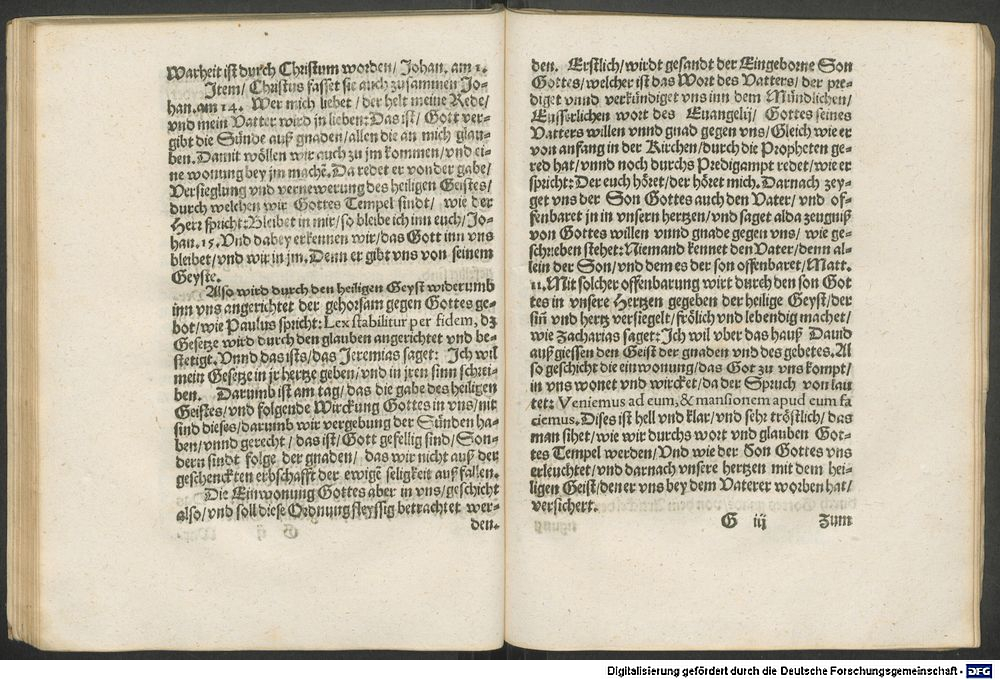 Warheit ist durch Christum worden/ Johan. am 1.
Item/ Christus fasset sie auch zusammen Jo-
han. am 14. Wer mich liebet/ der helt meine Rede/
vnd mein Vatter wird in lieben: Das ist/ Gott ver-
gibt die Sünde auß gnaden/ allen die an mich glau-
ben. Damit wöllen wir auch zu jm kommen/ vnd ei-
ne wonung bey jm machẽ. Da redet er von der gabe/
Versieglung vnd vernewerung des heiligen Geistes/
durch welchen wir Gottes Tempel sindt/ wie der
Herr spricht: Bleibet in mir/ so bleibe ich inn euch/ Jo-
han. 15. Vnd dabey erkennen wir/ das Gott inn vns
bleibet/ vnd wir in jm. Denn er gibt vns von seinem
Geyste.
Also wird durch den heiligen Geyst widerumb
inn vns angerichtet der gehorsam gegen Gottes ge-
bot/ wie Paulus spricht: Lex stabilitur per fidem, dz
Gesetze wird durch den glauben angerichtet vnd be-
stetigt. Vnnd das ists/ das Jeremias saget: Ich wil
mein Gesetze in jr hertze geben/ vnd in jren sinn schrei-
ben. Darumb ist am tag/ das die gabe des heiligen
Geistes/ vnd folgende Wirckung Gottes in vns/ nit
sind dieses/ darumb wir vergebung der Sünden ha-
ben/ vnnd gerecht/ das ist/ Gott gefellig sind/ Son-
dern sindt folge der gnaden/ das wir nicht auß der
geschenckten erbschafft der ewigẽ seligkeit auß fallen.
Die Einwonung Gottes aber in vns/ geschicht
also/ vnd soll diese Ordnung fleyssig betrachtet wer-
den.
den. Erstlich/ wirdt gesandt der Eingeborne Son
Gottes/ welcher ist das Wort des Vatters/ der pre-
diget vnnd verkündiget vns inn dem Mündlichen/
Eusserlichen wort des Euangelij/ Gottes seines
Vatters willen vnnd gnad gegen vns/ Gleich wie er
von anfang in der Kirchen/ durch die Propheten ge-
red hat/ vnnd noch durchs Predigampt redet/ wie er
spricht: Der euch höret/ der höret mich. Darnach zey-
get vns der Son Gottes auch den Vater/ vnd of-
fenbaret jn in vnsern hertzen/ vnd saget alda zeugniß
von Gottes willen vnnd gnade gegen vns/ wie ge-
schrieben stehet: Niemand kennet den Vater/ denn al-
lein der Son/ vnd dem es der son offenbaret/ Matt.
11. Mit solcher offenbarung wirt durch den son Got
tes in vnsere Hertzen gegeben der heilige Geyst/ der
siñ vnd hertz versiegelt/ frölich vnd lebendig machet/
wie Zacharias saget: Ich wil vber das hauß Dauid
auß giessen den Geist der gnaden vnd des gebetes. Al
so geschicht die einwonung/ das Got zu vns kompt/
in vns wonet vnd wircket/ da der Spruch von lau
tet: Veniemus ad eum, & mansionem apud eum fa
ciemus. Dises ist hell vnd klar/ vnd sehr tröstlich/ das
man sihet/ wie wir durchs wort vnd glauben Got-
tes Tempel werden/ Vnd wie der Son Gottes vns
erleuchtet/ vnd darnach vnsere hertzen mit dem hei-
ligen Geist/ den er vns bey dem Vater erworben hat/
versichert.
G iij Zum
Digitalisierung gefördert durch die Deutsche Forschungsgemeinschaft - DFG